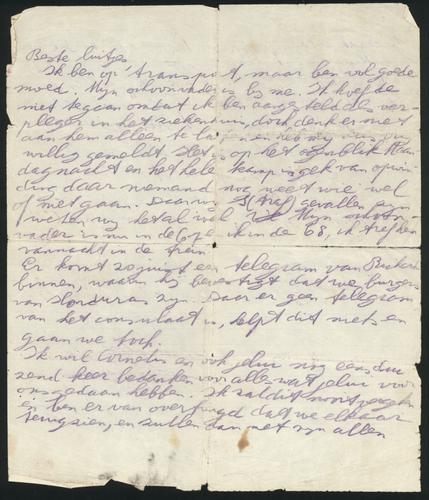 Beste luitjes
Ik ben op transport, maar ben vol goede
moed. Mijn schoonvader is bij me. Ik hoefde
niet te gaan omdat ik ben aangesteld als ver-
pleger in het ziekenhuis, doch denk er niet
aan hem alleen te laten en heb mij
willig gemeld. Het is op het ogenblik Maan
dagnacht en het hele kamp is gek van opwin
ding daar niemand nog weet wie wel
of niet gaan. Daar wij Straf gevallen zijn
weten wij het al wel. Mijn schoon-
vader is nu in de 67 ik in de 68, ik tref hen
vannacht in de trein.
Er komt zojuist een telegram van
binnen, waarin hij bevestigt dat we burgers
van Honduras zijn. Daar er geen telegram
van het consulaat is, helpt dit niets en
gaan we toch.
Ik wil Cornelis en ook jelui nog eens dui
zend keer bedanken voor alles wat jelui voor
ons gedaan hebben. Ik zal dit nooit vergeten
en ben er van overtuigd dat we elkaar
terugzien, en zullen dan met zijn allen